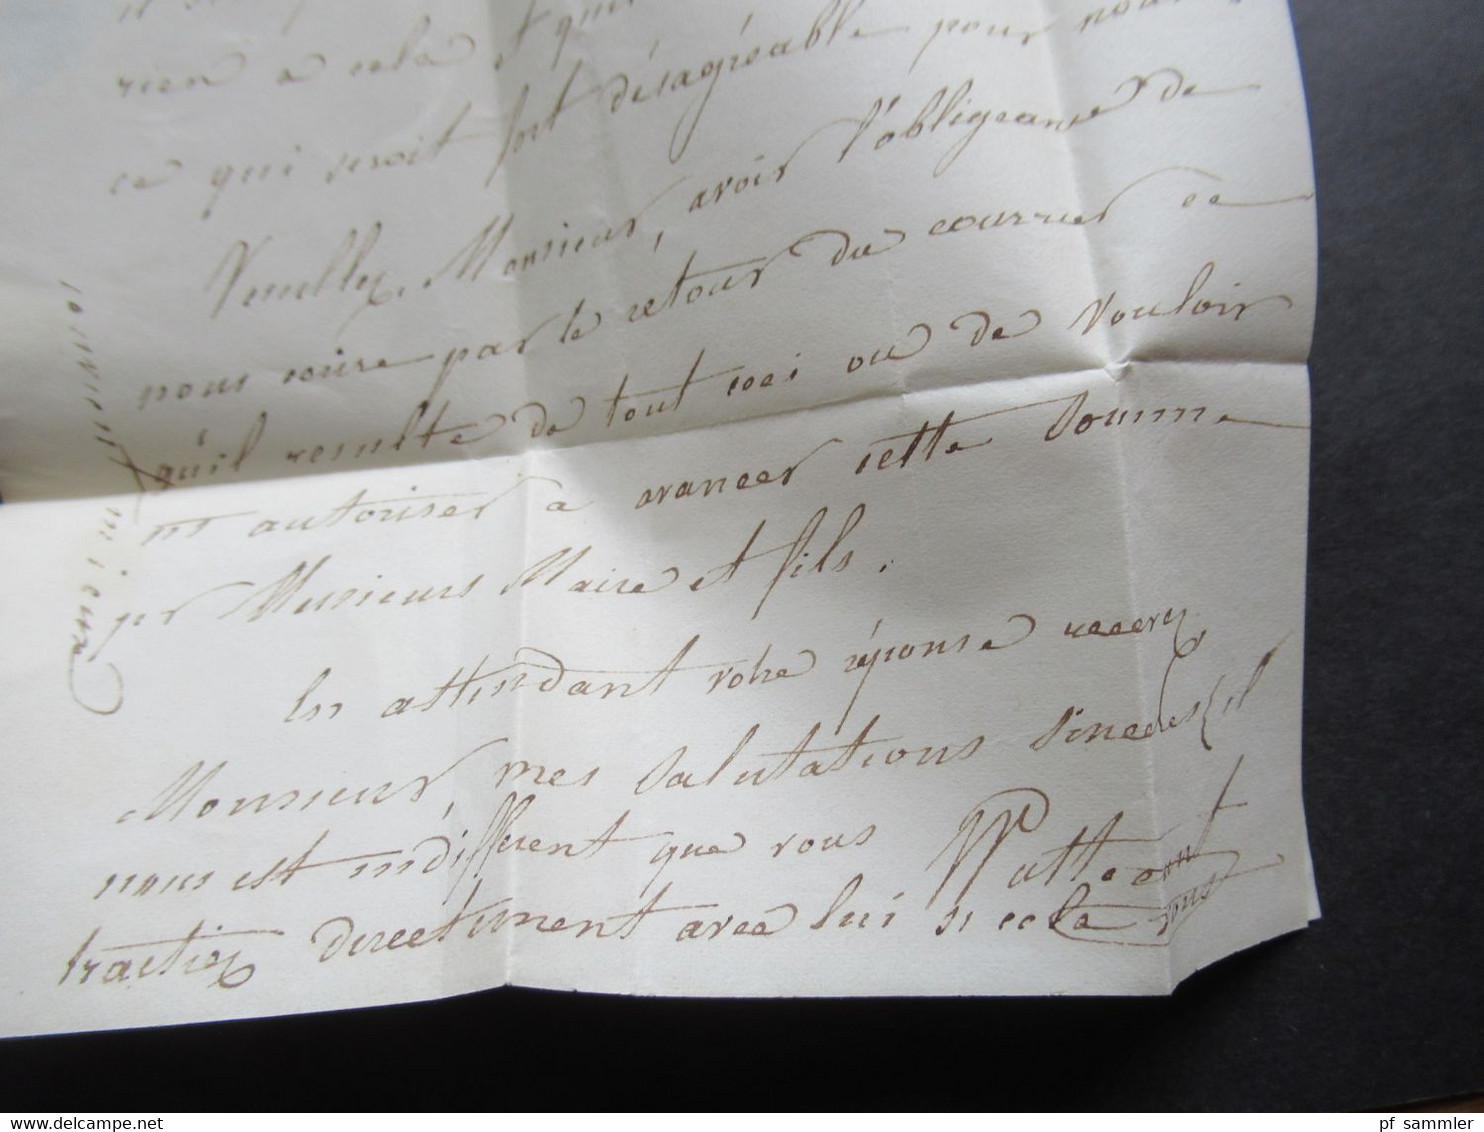 rien à cela et qu
ce qui seroit fort désagréable pour nous
Veuillez, Monsieur, avoir l'obligeance de
nous écrire par le retour du courrier ce
qu'il resulte de tout ceci ou de vouloir
m'autoriser a avancer cette Somme
pr Messieurs Maire et fils.
En attendant votre réponse recevez
Monsieur, mes Salutations Sinceres, il
nous est indifferent que vous
traitiez directement avec lui si cela vous
convient mieux
pf sammler